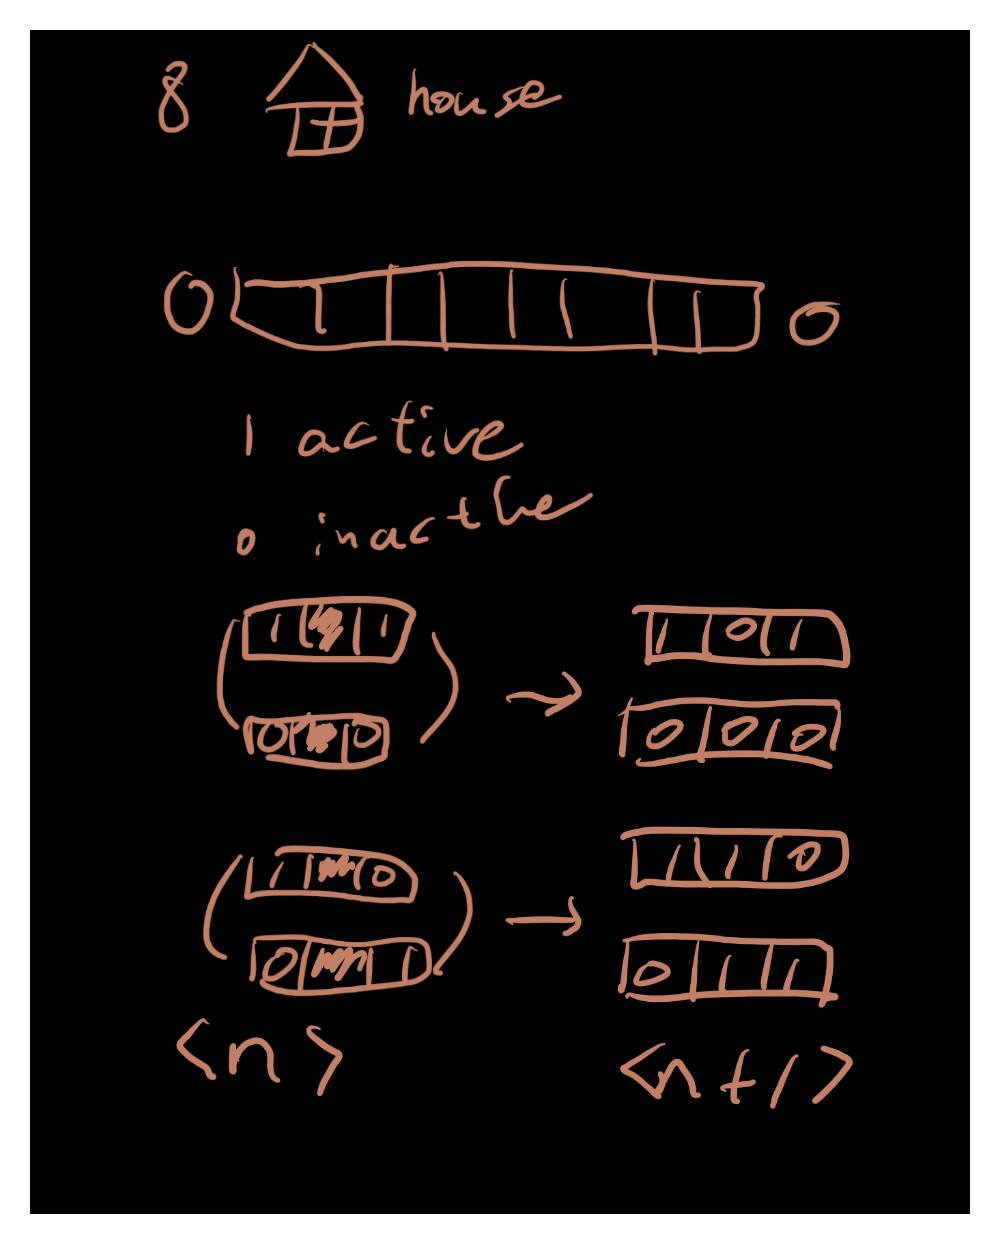 8 house
0 0
1 active
0 inactive
1 1 → 1 0 1
0 0 → 0 0 0
1 0 → 1 1 0
0 1 → 0 1 1
<n> <n+1>